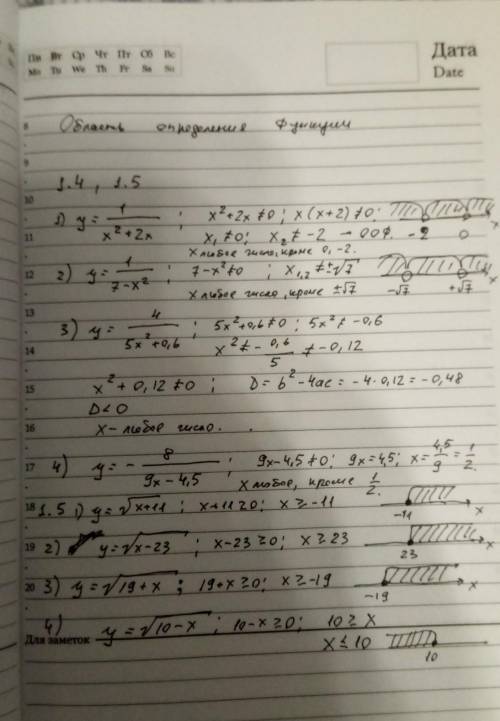 Пн Вт Ср Чт Пт Сб Вс
Mo Tu We Th Fr Sa Su
Дата
Date
8 Область определения функции
9
1.4, 1.5
10
1) y = 1/(x²+2x) ; x²+2x ≠ 0 ; x(x+2) ≠ 0 ;
11 x₁ ≠ 0 ; x₂ ≠ -2 – ООФ. -2 0 x
x любое число, кроме 0, -2.
12 2) y = 1/(7-x²) ; 7-x² ≠ 0 ; x₁,₂ ≠ ±√7
x любое число, кроме ±√7 -√7 +√7 x
13
3) y = 4/(5x²+0,6) ; 5x²+0,6 ≠ 0 ; 5x² ≠ -0,6
14 x² ≠ -0,6/5 ≠ -0,12
15 x²+0,12 ≠ 0 ; D = b²-4ac = -4·0,12 = -0,48
D < 0
16 x – любое число.
17 4) y = - 8/(9x-4,5) ; 9x-4,5 ≠ 0 ; 9x = 4,5 ; x = 4,5/9 = 1/2.
x любое, кроме 1/2.
18 1.5 1) y = √(x+11) ; x+11 ≥ 0 ; x ≥ -11 -11 x
19 2) y = √(x-23) ; x-23 ≥ 0 ; x ≥ 23 23 x
20 3) y = √(19+x) ; 19+x ≥ 0 ; x ≥ -19 -19 x
4) y = √(10-x) ; 10-x ≥ 0 ; 10 ≥ x
Для заметок x ≤ 10 10